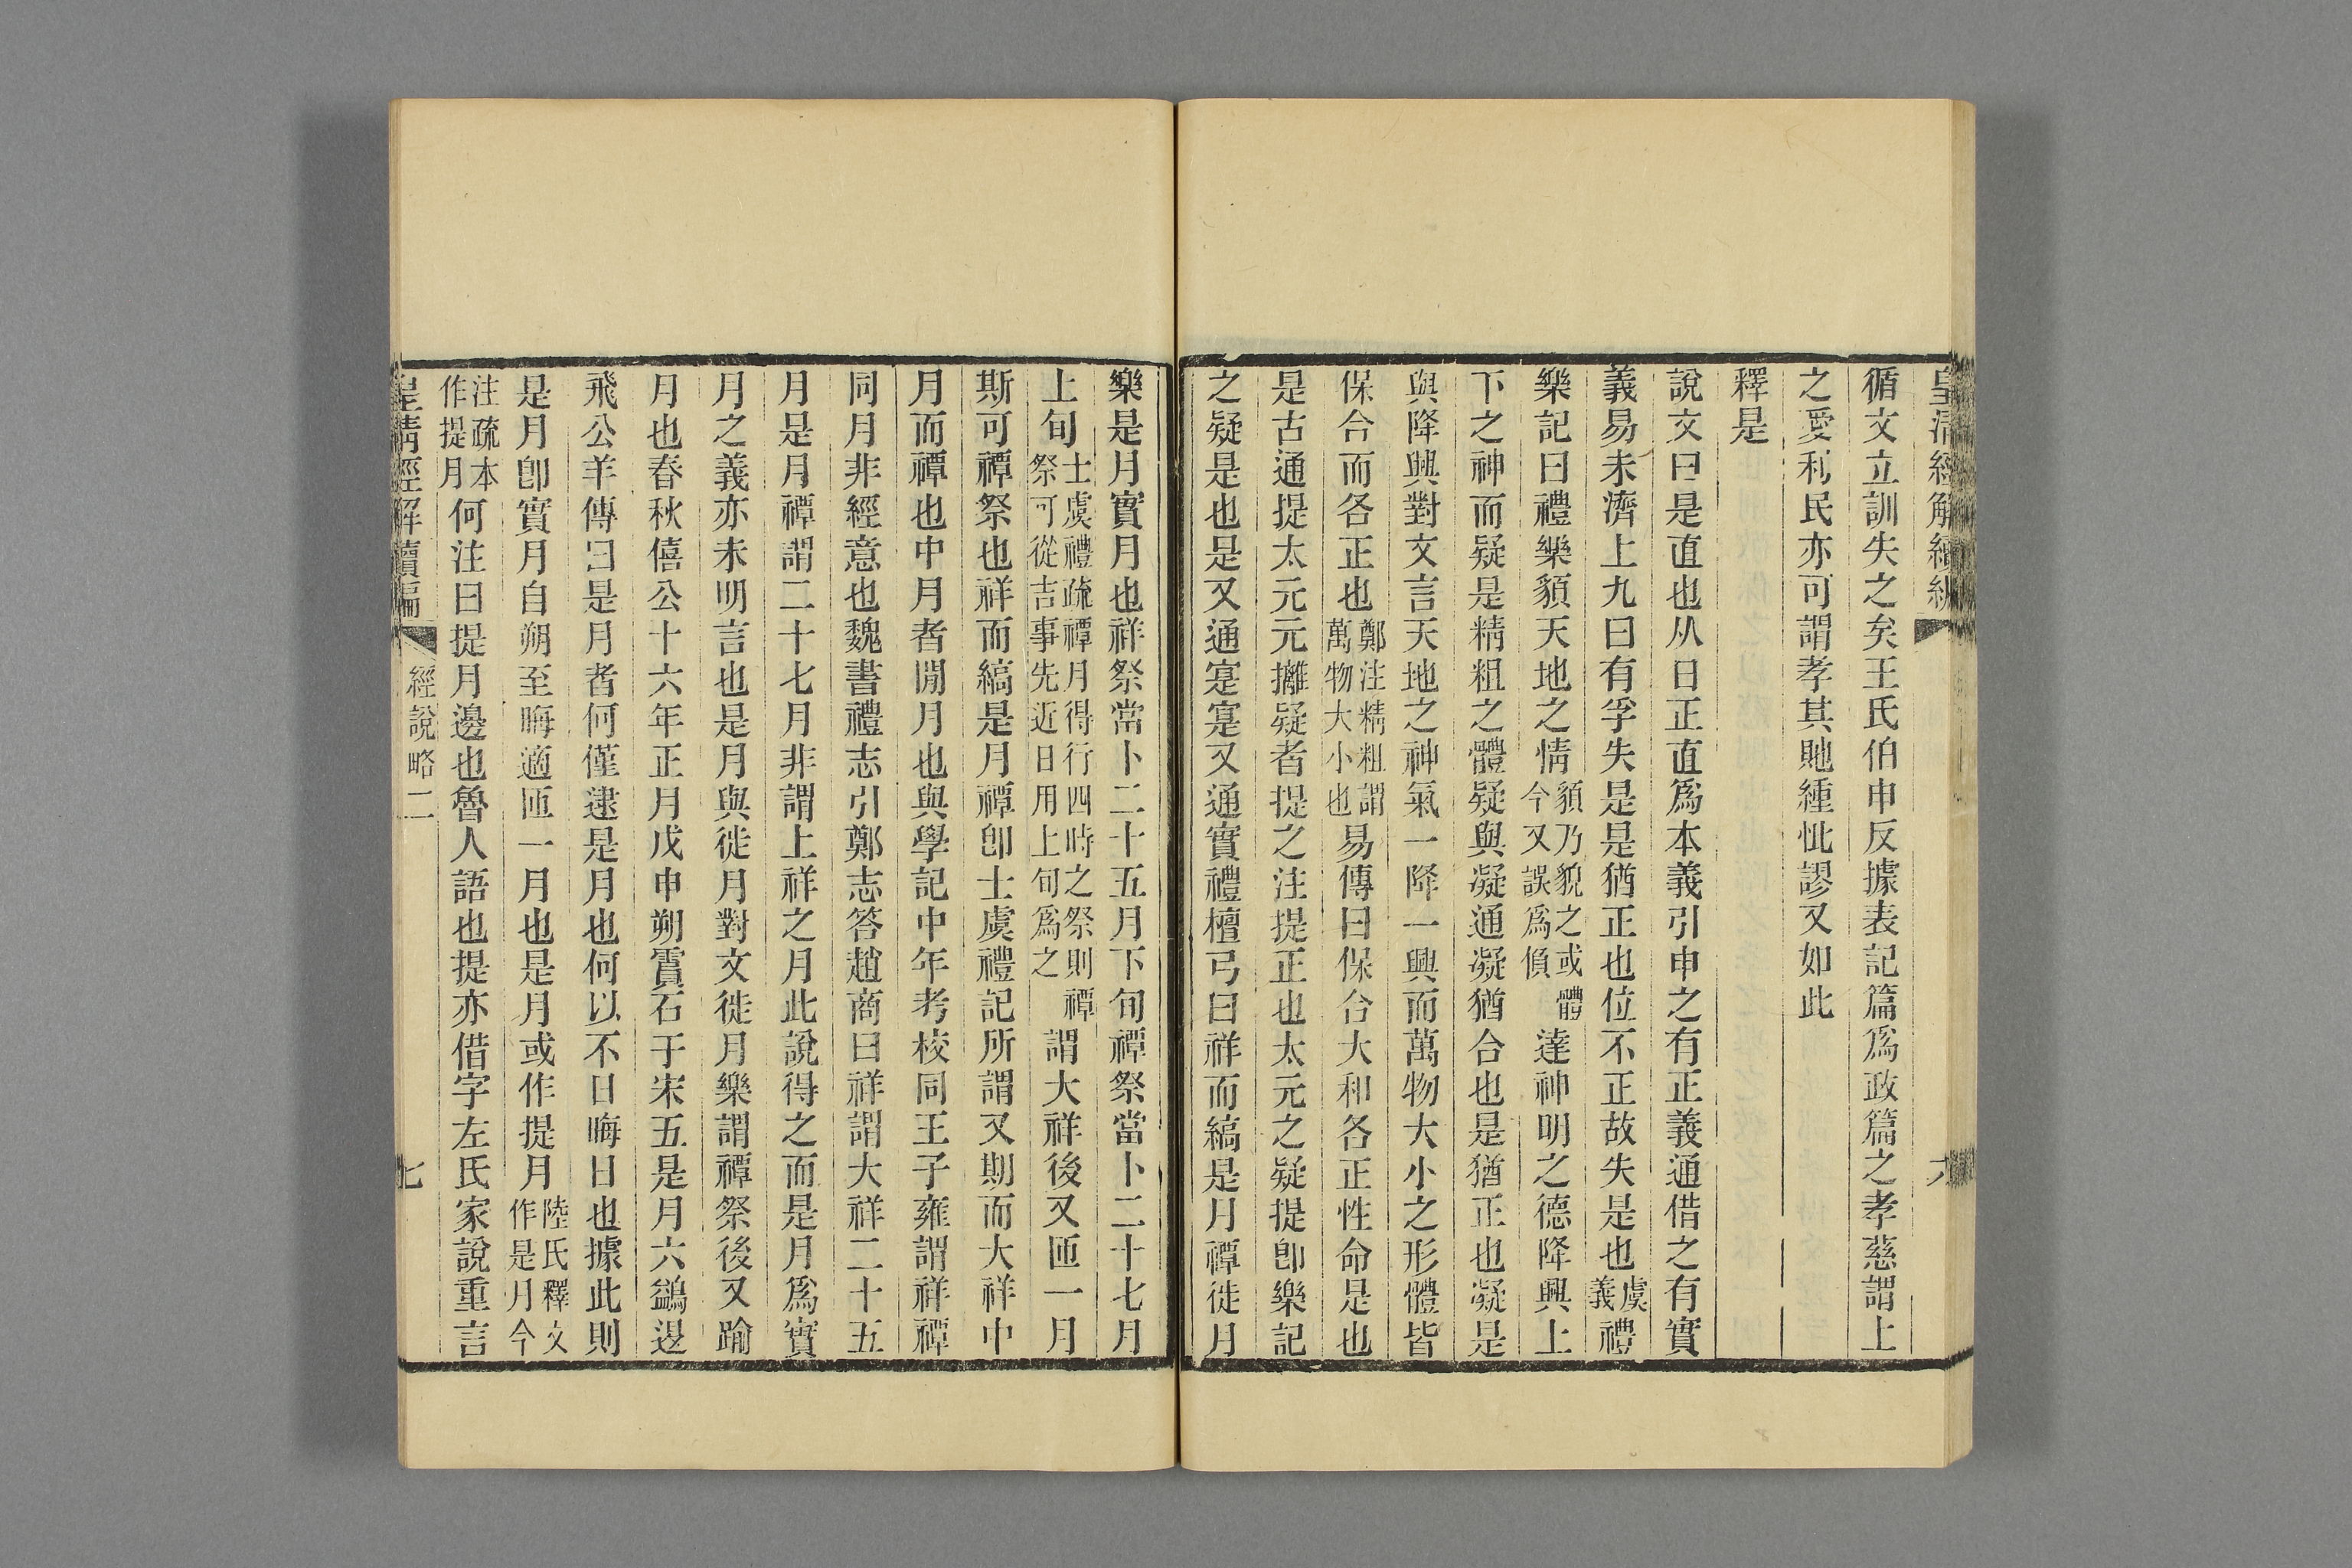 皇清經解續編
六
循文立訓失之矣王氏伯申反據表記篇爲政篇之孝慈謂上
之愛利民亦可謂孝其貤緟怭謬又如此
釋是
說文曰是直也从日正直爲本義引申之有正義通借之有實
義易未濟上九曰有孚失是是猶正也位不正故失是也虞禮義
樂記曰禮樂䫉天地之情䫉乃貌之或體今又誤爲偩達神明之德降興上
下之神而疑是精粗之體疑與凝通凝猶合也是猶正也凝是
與降興對文言天地之神氣一降一興而萬物大小之形體皆
保合而各正也鄭注精粗謂萬物大小也易傳曰保合大和各正性命是也
是古通提太元元攡疑者提之注提正也太元之疑提卽樂記
之疑是也是又通寔寔又通實禮檀弓曰祥而縞是月禫徙月
樂是月實月也祥祭當卜二十五月下旬禫祭當卜二十七月
上旬士虞禮疏禫月得行四時之祭則禫祭可從吉事先近日用上旬爲之謂大祥後又匝一月
斯可禫祭也祥而縞是月禫卽士虞禮記所謂又期而大祥中
月而禫也中月者閒月也與學記中年考校同王子雍謂祥禫
同月非經意也魏書禮志引鄭志答趙商曰祥謂大祥二十五
月是月禫謂二十七月非謂上祥之月此說得之而是月爲實
月之義亦未明言也是月與徙月對文徙月樂謂禫祭後又踰
月也春秋僖公十六年正月戊申朔霣石于宋五是月六鷁退
飛公羊傳曰是月者何僅逮是月也何以不日晦日也據此則
是月卽實月自朔至晦適匝一月也是月或作提月陸氏釋文作是月今
注疏本作提月何注曰提月邊也魯人語也提亦借字左氏家說重言
皇清經解續編
經說略二
七